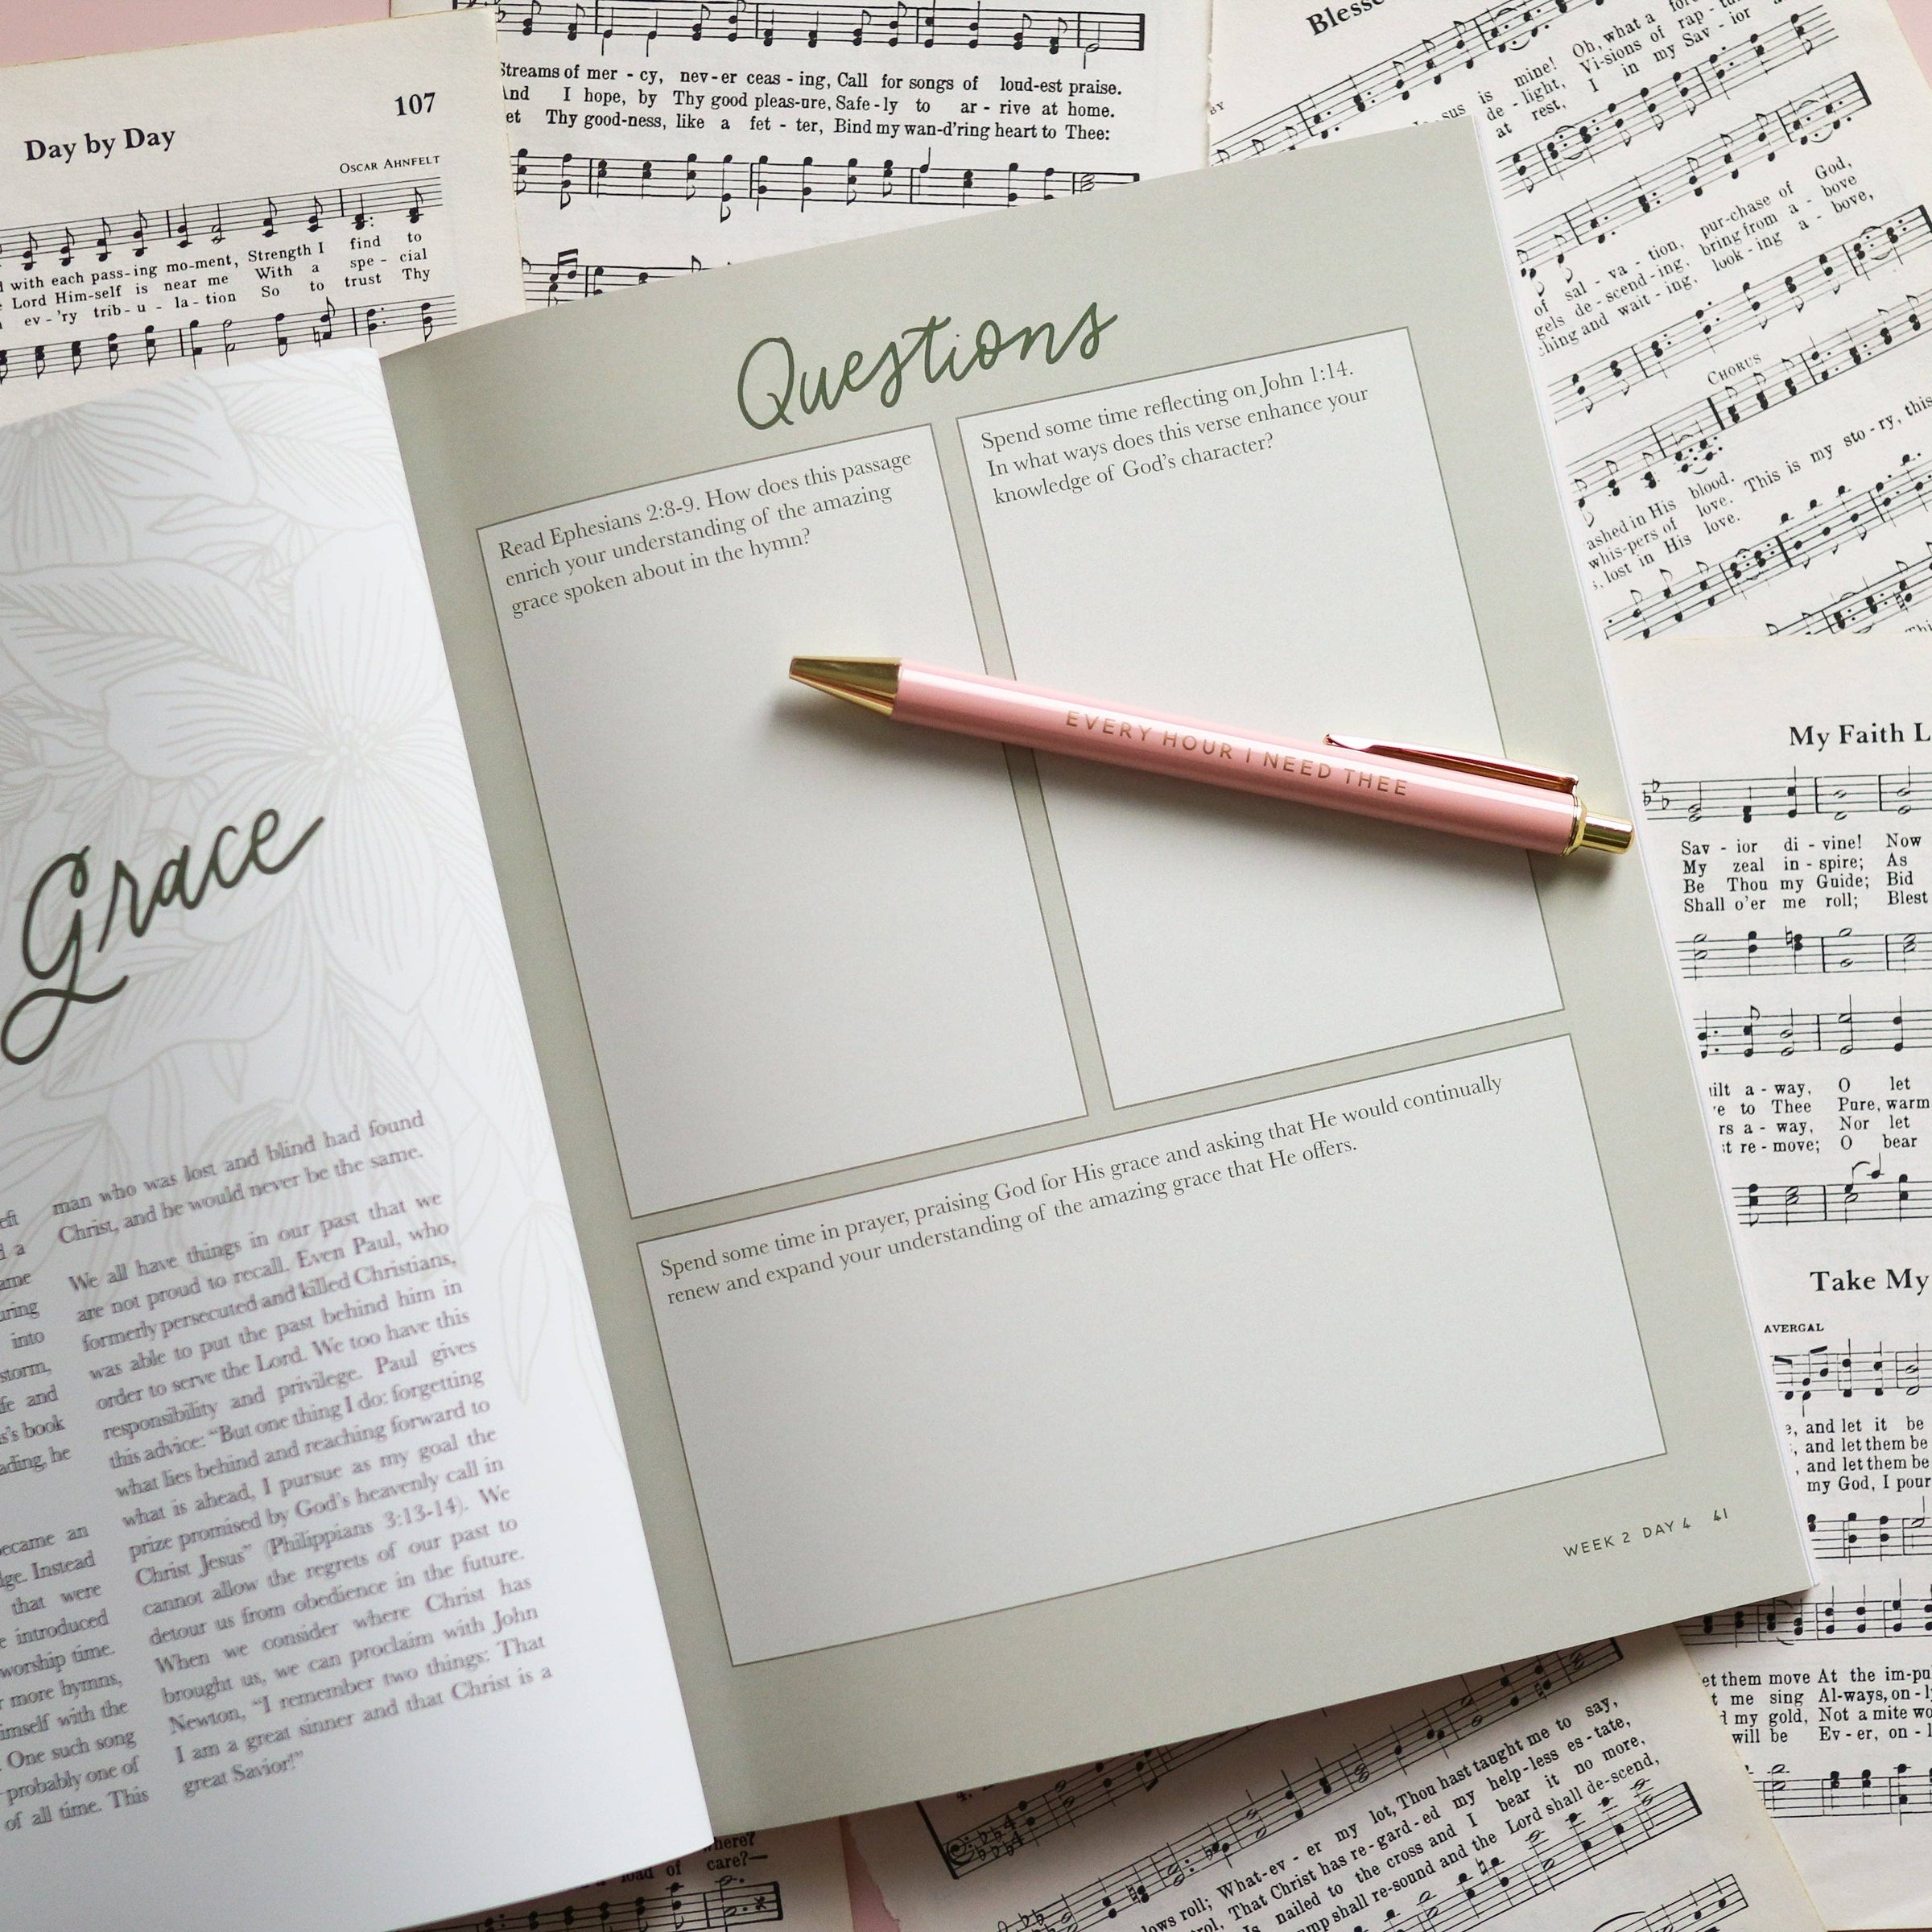 Day by Day
107
OSCAR AHNFELT
with each pass-ing mo-ment, Strength I find to
Lord Him-self is near me With a spe - cial
ev-'ry trib-u - la-tion So to trust Thy
Streams of mer - cy, nev-er ceas - ing, Call for songs of loud-est praise.
And I hope, by Thy good pleas-ure, Safe-ly to ar - rive at home.
et Thy good-ness, like a fet - ter, Bind my wan-d'ring heart to Thee:
Blesse
BY
sus is mine! Oh, what a fore
de - light, Vi-sions of rap - tu
at rest, I in my Sav - ior
of sal - va - tion, pur-chase of God,
gels de - scend-ing, bring from a - bove
ching and wait - ing, look-ing a - bove,
CHORUS
ashed in His blood. This is my sto-ry, this
whis-pers of love.
, lost in His love.
Questions
Read Ephesians 2:8-9. How does this passage
enrich your understanding of the amazing
grace spoken about in the hymn?
Spend some time reflecting on John 1:14.
In what ways does this verse enhance your
knowledge of God's character?
EVERY HOUR I NEED THEE
Spend some time in prayer, praising God for His grace and asking that He would continually
renew and expand your understanding of the amazing grace that He offers.
WEEK 2 DAY 4 41
Grace
eft
d a
ame
uring
into
storm,
fe and
s's book
ading, he
ecame an
dge. Instead
that were
e introduced
worship time.
r more hymns,
imself with the
. One such song
probably one of
of all time. This
man who was lost and blind had found
Christ, and he would never be the same.
We all have things in our past that we
are not proud to recall. Even Paul, who
formerly persecuted and killed Christians,
was able to put the past behind him in
order to serve the Lord. We too have this
responsibility and privilege. Paul gives
this advice: "But one thing I do: forgetting
what lies behind and reaching forward to
what is ahead, I pursue as my goal the
prize promised by God's heavenly call in
Christ Jesus" (Philippians 3:13-14). We
cannot allow the regrets of our past to
detour us from obedience in the future.
When we consider where Christ has
brought us, we can proclaim with John
Newton, "I remember two things: That
I am a great sinner and that Christ is a
great Savior!"
My Faith L
Sav - ior di - vine! Now
My zeal in - spire; As
Be Thou my Guide; Bid
Shall o'er me roll; Blest
uilt a - way, O let
e to Thee Pure, warm
rs a - way, Nor let
st re - move; O bear
Take My
AVERGAL
e, and let it be
, and let them be
, and let them be
my God, I pour
et them move At the im-pu
t me sing Al-ways, on - l
d my gold, Not a mite wo
will be Ev - er, on - l
here?
load of care?—
lows roll; What-ev - er my lot, Thou hast taught me to say,
rol, That Christ has re-gard-ed my help-less es-tate,
Is nailed to the cross and I bear it no more,
mp shall re-sound and the Lord shall de-scend,